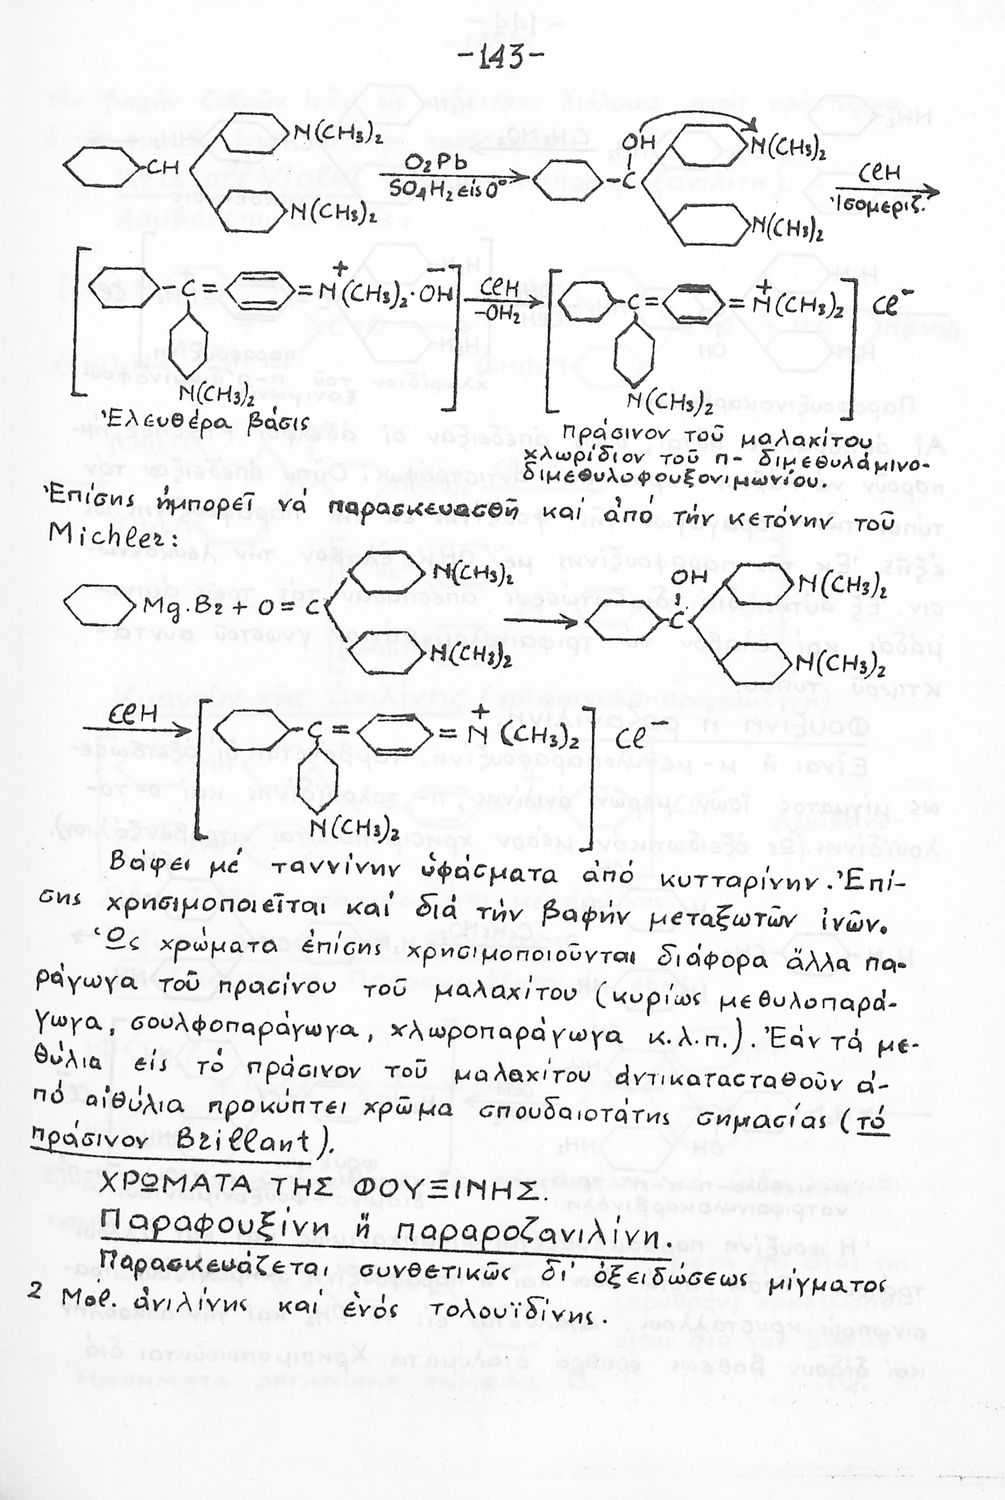 -143-
N(CH3)2 OH N(CH3)2
CH O2Pb C ClH
SO4H2 εἰς 0° Ἰσομεριζ.
N(CH3)2 N(CH3)2
C = = N+(CH3)2·OH− ClH C = = N+(CH3)2 Cl−
-OH2
N(CH3)2 N(CH3)2
Ἐλευθέρα βάσις
πράσινον τοῦ μαλαχίτου
χλωρίδιον τοῦ π- διμεθυλάμινο-
διμεθυλοφουξονιμωνίου.
Ἐπίσης ἠμπορεῖ νά παρασκευασθῆ καί ἀπό τήν κετόνην τοῦ
Michler:
N(CH3)2 OH N(CH3)2
Mg.Br + O = C C
N(CH3)2 N(CH3)2
ClH C = = N+(CH3)2 Cl−
N(CH3)2
Βάφει μέ ταννίνην ὑφάσματα ἀπό κυτταρίνην. Ἐπί-
σης χρησιμοποιεῖται καί διά τήν βαφήν μεταξωτῶν ἰνῶν.
Ὡς χρώματα ἐπίσης χρησιμοποιοῦνται διάφορα ἄλλα πα-
ράγωγα τοῦ πρασίνου τοῦ μαλαχίτου (κυρίως μεθυλοπαρά-
γωγα, σουλφοπαράγωγα, χλωροπαράγωγα κ.λ.π.). Ἐάν τά με-
θύλια εἰς τό πράσινον τοῦ μαλαχίτου ἀντικατασταθοῦν ἀ-
πό αἰθύλια προκύπτει χρῶμα σπουδαιοτάτης σημασίας (τό
πράσινον Brillant).
ΧΡΩΜΑΤΑ ΤΗΣ ΦΟΥΞΙΝΗΣ.
Παραφουξίνη ἤ παραροζανιλίνη.
Παρασκευάζεται συνθετικῶς δι' ὀξειδώσεως μίγματος
2 Mol. ἀνιλίνης καί ἑνός τολουϊδίνης.